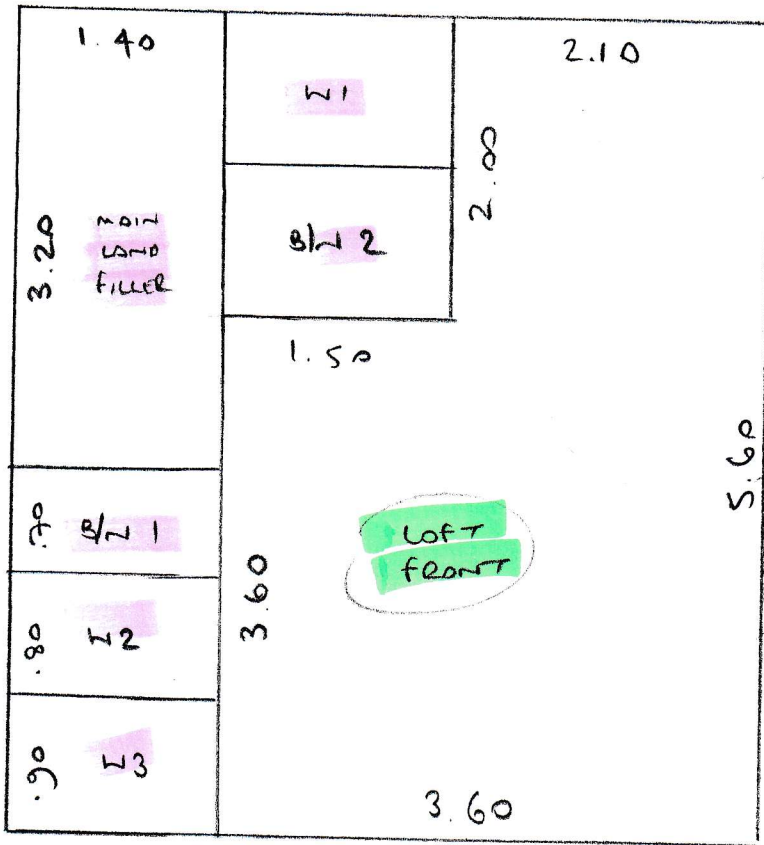 1.40
W1
2.10
2.00
3.20
MAIN
LAND
FILLER
B/W 2
1.50
5.60
.70
B/W 1
LOFT
FRONT
3.60
.80
W2
.90
W3
3.60